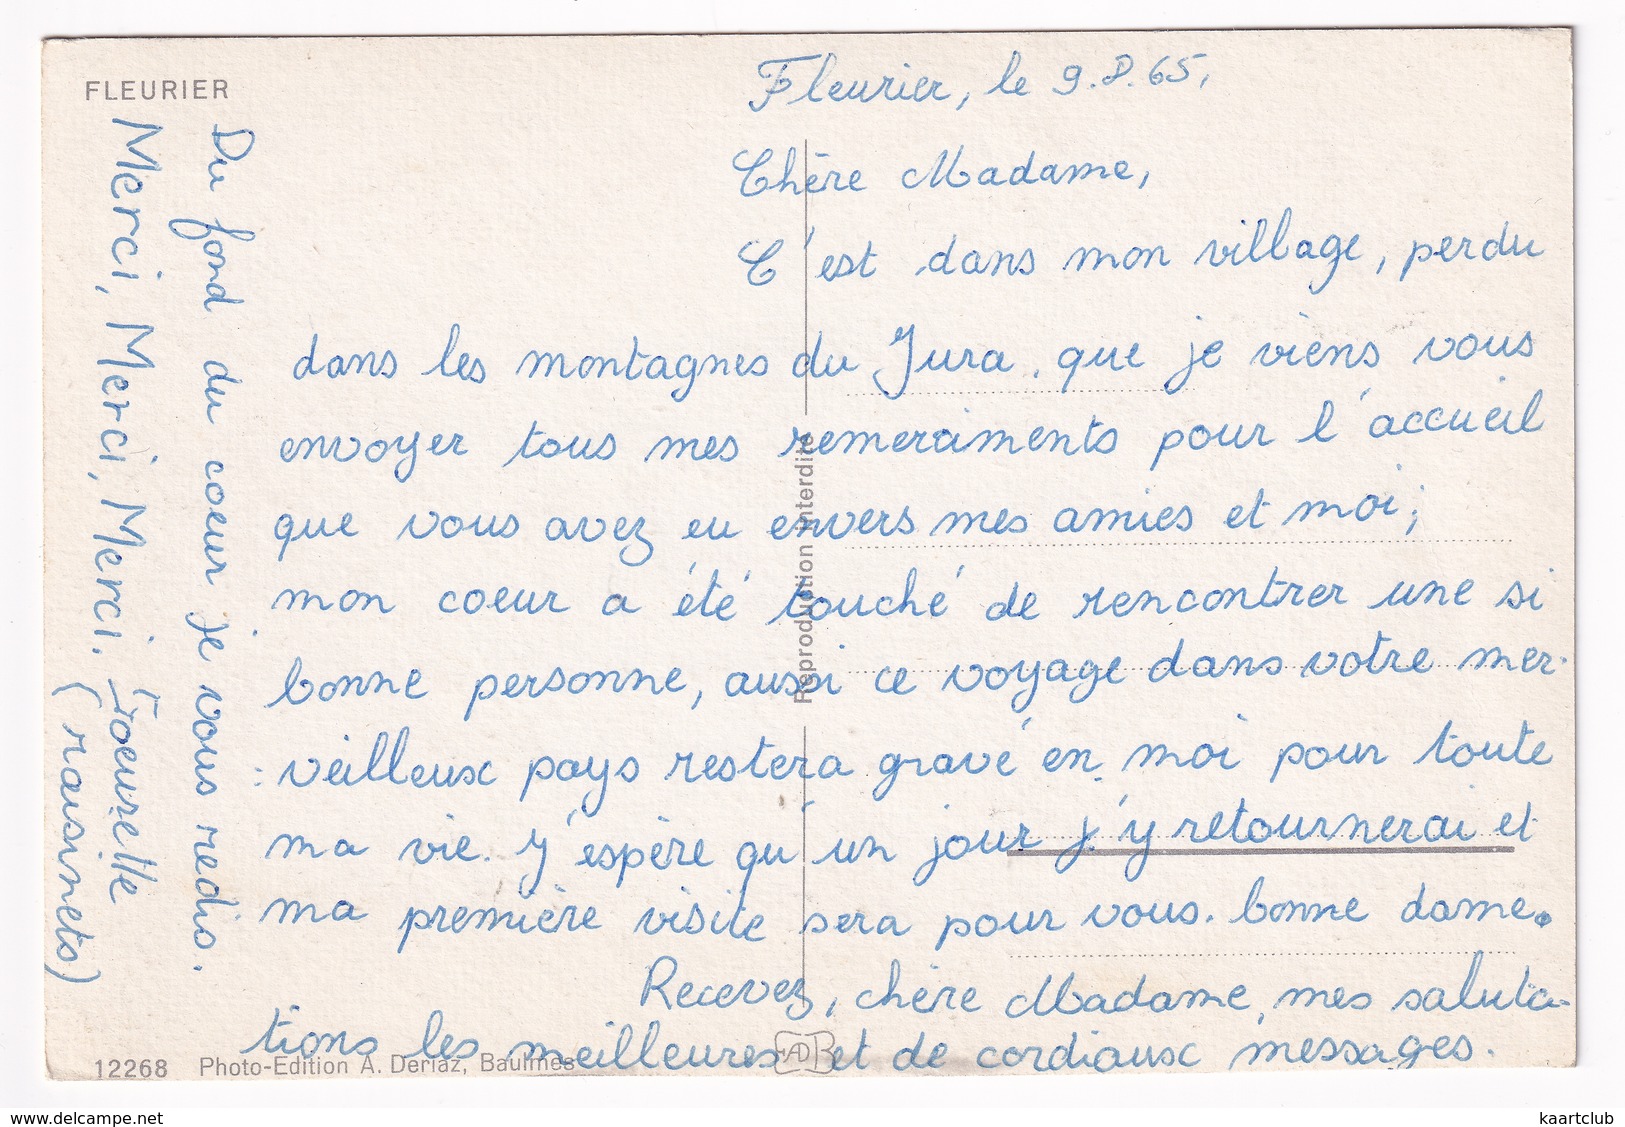 FLEURIER
Fleurier, le 9.8.65,
Chère Madame,
C'est dans mon village, perdu
dans les montagnes du Jura, que je viens vous
envoyer tous mes remerciments pour l'accueil
que vous avez eu envers mes amies et moi;
mon coeur a été touché de rencontrer une si
bonne personne, aussi ce voyage dans votre mer-
veilleux pays restera gravé en moi pour toute
ma vie. J'espère qu'un jour j'y retournerai et
ma première visite sera pour vous. bonne dame.
Recevez, chère Madame, mes saluta-
tions les meilleures et de cordiaux messages.
Du fond du coeur je vous redis.
Merci, Merci, Merci.
(raisinets)
Reproduction interdite
12268 Photo-Edition A. Deriaz, Baulmes
AD
www.delcampe.net
kaartclub